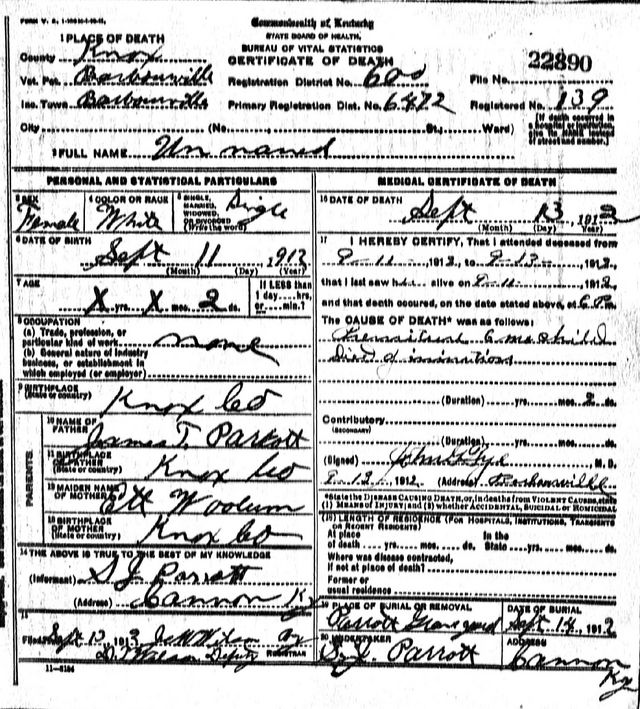 FORM V. S.
Commonwealth of Kentucky
STATE BOARD OF HEALTH,
BUREAU OF VITAL STATISTICS
CERTIFICATE OF DEATH
22890
1 PLACE OF DEATH
County Knox
Vot. Pct. Barbourville
Registration District No. 600
File No.
Inc. Town Barbourville
Primary Registration Dist. No. 6472
Registered No. 139
City (No. St., Ward)
[If death occurred in a hospital or institution, give its NAME instead of street and number.]
2 FULL NAME Un named
PERSONAL AND STATISTICAL PARTICULARS
3 SEX Female
4 COLOR OR RACE White
5 SINGLE, MARRIED, WIDOWED, OR DIVORCED (Write the word) Sigle
6 DATE OF BIRTH Sept 11, 1912
(Month) (Day) (Year)
7 AGE X yrs. X mos. 2 ds.
If LESS than 1 day....hrs, or....min.?
8 OCCUPATION
(a) Trade, profession, or particular kind of work none
(b) General nature of industry business, or establishment in which employed (or employer)
9 BIRTHPLACE (State or country) Knox Co
PARENTS
10 NAME OF FATHER James T. Parrott
11 BIRTHPLACE OF FATHER (State or country) Knox Co
12 MAIDEN NAME OF MOTHER Ett Woolum
13 BIRTHPLACE OF MOTHER (State or country) Knox Co
14 THE ABOVE IS TRUE TO THE BEST OF MY KNOWLEDGE
(Informant) S J Parrott
(Address) Cannon Ky
15
Filed Sept 13, 1912 Wilson
D. T. Wilson Deputy REGISTRAR
11-5184
MEDICAL CERTIFICATE OF DEATH
16 DATE OF DEATH Sept 13, 1912
(Month) (Day) (Year)
17 I HEREBY CERTIFY, That I attended deceased from
9-11 1912, to 9-13, 1912,
that I last saw h alive on 9-11 1912,
and that death occured, on the date stated above, at 6 P m.
The CAUSE OF DEATH* was as follows:
7 mos child
Died of
(Duration) yrs. mos. 2 ds.
Contributory
(SECONDARY)
(Duration) yrs. mos. ds.
(Signed) John G Tye, M. D.
9-12-1912 (Address) Barbourville
*State the DISEASE CAUSING DEATH, or, in deaths from VIOLENT CAUSES, state (1) MEANS OF INJURY; and (2) whether ACCIDENTAL, SUICIDAL or HOMICIDAL
(18) LENGTH OF RESIDENCE (FOR HOSPITALS, INSTITUTIONS, TRANSIENTS OR RECENT RESIDENTS)
At place of death yrs. mos. ds. In the State yrs. mos. ds.
Where was disease contracted, if not at place of death?
Former or usual residence
19 PLACE OF BURIAL OR REMOVAL Parrott Graveyard
DATE OF BURIAL Sept 14, 1912
20 UNDERTAKER S. J. Parrott
ADDRESS Cannon Ky